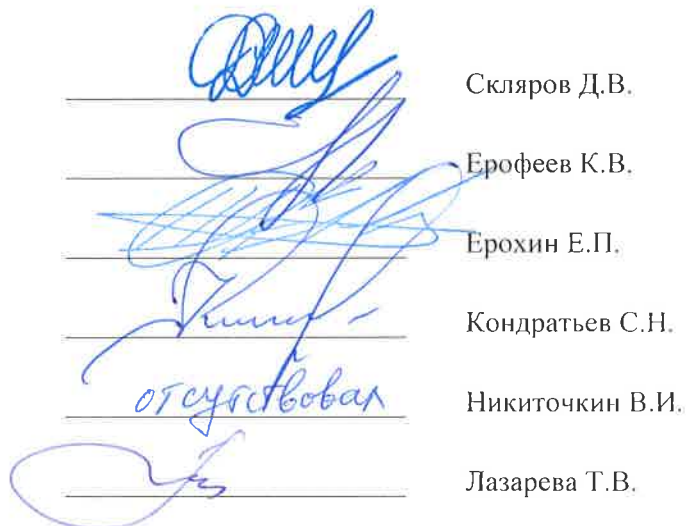 Скляров Д.В.
Ерофеев К.В.
Ерохин Е.П.
Кондратьев С.Н.
отсутствовал Никиточкин В.И.
Лазарева Т.В.